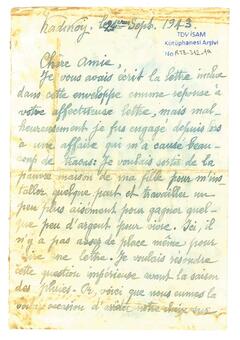 Kadıköy, le 2 Sept. 1943
TDV İSAM
Kütüphanesi Arşivi
No RTB-312.14
Chère Amie,
Je vous avais écrit la lettre incluse
dans cette enveloppe comme réponse à
votre affectueuse lettre, mais mal-
heureusement je fus engagé depuis
à une affaire qui m'a causé beau-
coup de tracas: Je voulais sortir de la
pauvre maison de ma fille pour m'ins-
taller quelque part et travailler un
peu plus aisément pour gagner quel-
que peu d'argent pour vivre. Ici, il
n'y a pas assez de place même pour
lire une lettre. Je voulais résoudre
cette question impérieuse avant la saison
des pluies. Or, voici que nous eûmes la
occasion d'